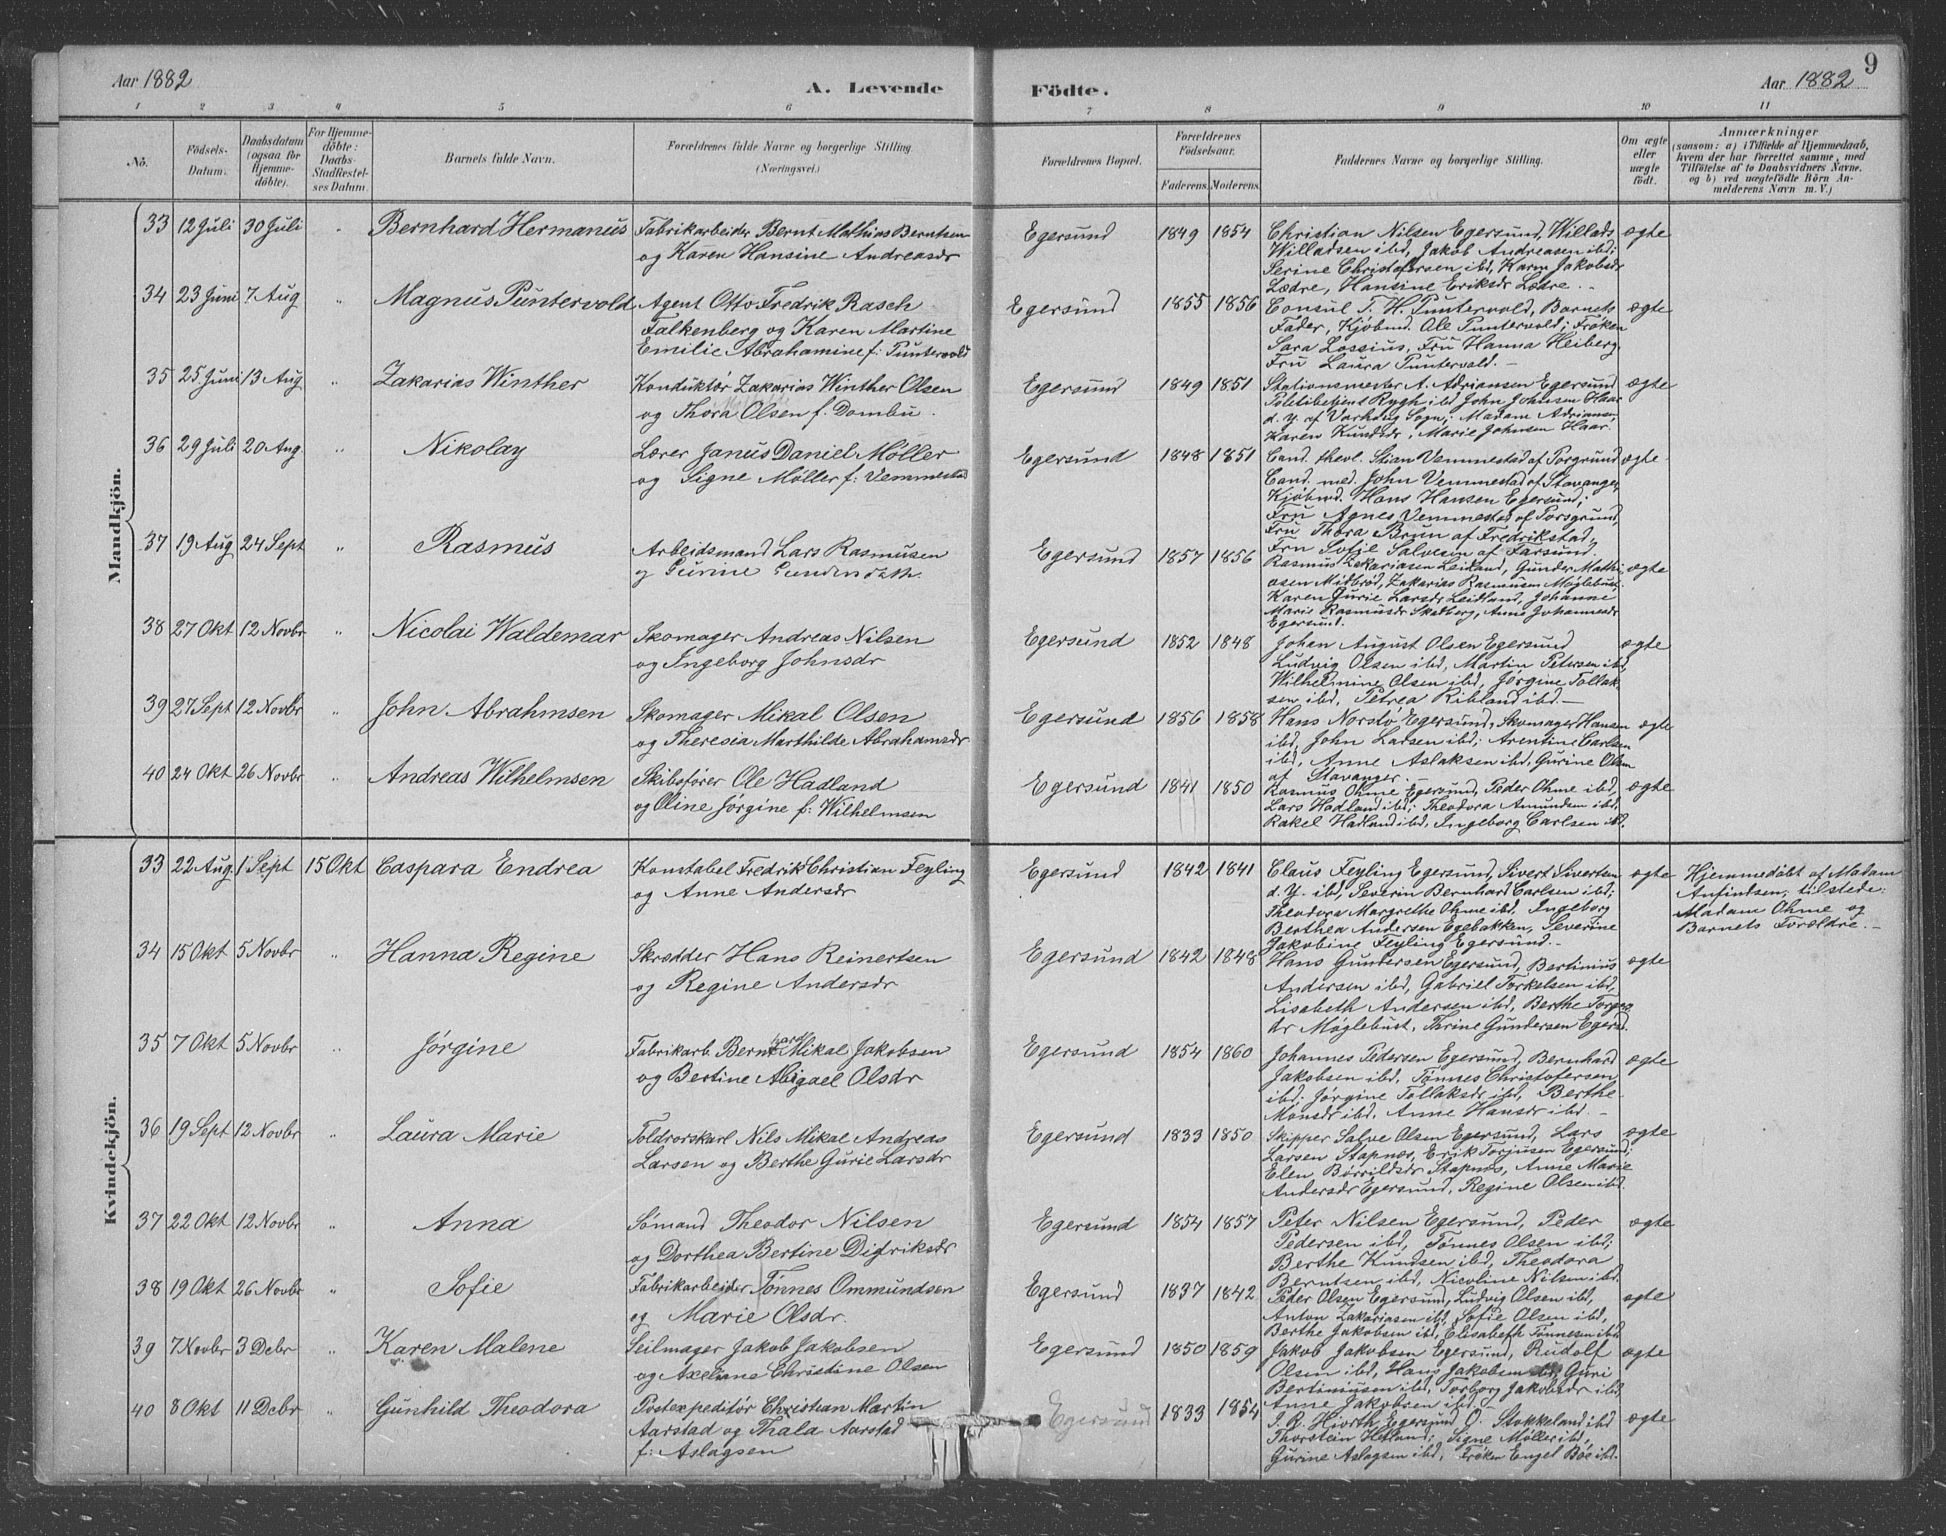 Aar 1882
A. Levende
Födte.
Aar 1882
9
1 2 3 4 5 6 7 8 9 10 11
No.
Födsels-
Datum.
Daabsdatum
(ogsaa for
Hjemme-
döbte).
For Hjemme-
döbte:
Daabs-
Stadfæstel-
ses Datum.
Barnets fulde Navn.
Forældrenes fulde Navne og borgerlige Stilling
(Næringsvei.)
Forældrenes Bopæl.
Forældrenes
Födselsaar.
Faderens. Moderens.
Faddernes Navne og borgerlige Stilling.
Om ægte
eller
uægte
födt.
Anmærkninger
(saasom: a) i Tilfælde af Hjemmedaab,
hvem der har forrettet samme, med
Tilföielse af to Daabsvidners Navne.
og b) ved uægtefödte Börn An-
melderens Navn m. V.)
Mandkjön.
33 12 Juli 30 Juli " Bernhard Hermanus
Fabrikarbeider Bernt Mathias Berntsen
og Karen Hansine Andreasdr
Egersund 1849 1854
Christian Nilsen Egersund, Willads
Willadsen ibd, Jakob Andreasen ibd;
Serine Christofersen ibd, Karen Jakobsdr
Lædre, Hansine Eriksdr Lædre. -
ægte
34 23 Juni 7 Aug " Magnus Puntervold
Agent Otto Fredrik Rasch
Falkenberg og Karen Martine
Emilie Abrahamine f: Puntervold
Egersund 1855 1856
Consul T. H. Puntervold, Barnets
Fader, Kjøbmd. Ole Puntervold; Frøken
Sara Lossius, Fru Hanna Heiberg
Fru Laura Puntervold. -
ægte
35 25 Juni 13 Aug " Zakarias Winther
Konduktør Zakarias Winther Olsen
og Thora Olsen f: Dombu.
Egersund 1849 1851
Stationsmester A. Adriansen Egersund
Politibetjent Rygh ibd John Johnsen Haar
d. y. af Varhaug Sogn; Madam Adriansen,
Karen Knudsdr, Marie Johnsen Haar.
ægte
36 29 Juli 20 Aug " Nikolay
Lærer Janus Daniel Møller
og Signe Møller f: Vemmestad
Egersund 1848 1851
Cand. theol. Stian Vemmestad af Porsgrund
Cand. med. John Vemmestad af Stavanger,
Kjøbmd. Hans Hansen Egersund;
Fru Agnes Vemmestad af Porsgrund,
Fru Thora Brun af Fredrikstad,
Fru Sofie Salvesen af Farsund.
ægte
37 19 Aug 24 Sept " Rasmus
Arbeidsmand Lars Rasmusen
og Gurine
Egersund 1857 1856
Rasmus Zakariasen Leidland, Gunder Mathi
asen Midbrød, Zakarias Rasmusen Møglebust;
Karen Gurie Larsdr Leidland, Johanne
Marie Rasmusdr Skadberg, Anne Johannesdr
Egersund.
ægte
38 27 Okt 12 Novbr " Nicolai Waldemar
Skomager Andreas Nilsen
og Ingeborg Johnsdr
Egersund 1852 1848
Johan August Olsen Egersund
Ludvig Olsen ibd, Martin Petersen ibd,
Wilhelmine Olsen ibd, Jørgine Tollak-
sen ibd, Petrea Ribland ibd. -
ægte
39 27 Sept 12 Novbr " John Abrahmsen
Skomager Mikal Olsen
og Theresia Marthilde Abrahamsdr
Egersund 1856 1858
Hans Norslø Egersund, Skomager Hansen
ibd, John Larsen ibd; Arentine Carlsen
ibd, Anne Aslaksen ibd, Gurine Olsen
af Stavanger.
ægte
40 24 Okt 26 Novbr " Andreas Wilhelmsen
Skibsfører Ole Hadland
og Oline Jørgine f: Wilhelmsen
Egersund 1841 1850
Rasmus Ohme Egersund, Peder Ohme ibd,
Lars Hadland ibd; Theodora Amundsen ibd,
Rakel Hadland ibd, Ingeborg Carlsen ibd.
ægte
Kvindekjön.
33 22 Aug 1 Sept 15 Okt Caspara Endrea
Konstabel Fredrik Christian Feyling
og Anne Andersdr
Egersund 1842 1841
Claus Feyling Egersund, Sivert Sivertsen
d. y. ibd, Severin Bernhard Carlsen ibd;
Theodora Margrethe Ohme ibd, Ingeborg
Berthea Andersen Egebakken, Severine
Jakobine Feyling Egersund. -
ægte
Hjemmedøbt af Madam
Anfindsen; tilstede:
Madam Ohme og
Barnets Forældre. -
34 15 Okt 5 Novbr " Hanna Regine
Skrædder Hans Reinertsen
og Regine Andersdr
Egersund 1842 1848
Hans Gundersen Egersund, Bertinius
Andersen ibd, Gabriel Torkelsen ibd,
Lisabeth Andersen ibd, Berthe Torger
dr Møglebust, Tarine Gundersen Egersd.
ægte
35 7 Okt 5 Novbr " Jørgine
Fabrikarb. Bernhard Mikal Jakobsen
og Bertine Abigael Olsdr
Egersund 1854 1860
Johannes Pedersen Egersund, Bernhard
Jakobsen ibd, Tønnes Christofersen
ibd; Jørgine Tollaksdr ibd, Berthe
Monsdr ibd, Anne Hansdr ibd. -
ægte
36 19 Sept 12 Novbr " Laura Marie
Toldrorskarl Nils Mikal Andreas
Larsen og Berthe Gurie Larsdr
Egersund 1833 1850
Skipper Salve Olsen Egersund, Lars
Larsen Stapnæs, Erik Torjusen Egersund;
Elen Børrildsdr Stapnæs, Anne Marie
Andersdr Egersund, Regine Olsen ibd.
ægte
37 22 Okt 12 Novbr " Anna
Sømand Theodor Nilsen
og Dorthea Bertine Didriksdr
Egersund 1854 1857
Peter Nilsen Egersund, Peder
Pedersen ibd, Tønnes Olsen ibd;
Berthe Knudsen ibd, Theodora
Berntsen ibd, Nicoline Nilsen ibd.
ægte
38 19 Okt 26 Novbr " Sofie
Fabrikarbeider Tønnes Ommundsen
og Marie Olsdr.
Egersund 1837 1842
Peder Olsen Egersund, Ludvig Olsen ibd,
Anton Zakariasen ibd, Sofie Olsen ibd,
Berthe Jakobsen ibd, Elisabeth Tønnesen ibd.
ægte
39 7 Novbr 3 Debr " Karen Malene
Seilmager Jakob Jakobsen
og Axeliane Christine Olsen
Egersund 1850 1859
Jakob Jakobsen Egersund, Rudolf
Olsen ibd, Hans Jakobsen ibd, Guri
Bertiniusen ibd, Torborg Jakobsdr ibd,
Anne Jakobsen ibd. -
ægte
40 8 Okt 11 Debr " Gunhild Theodora
Postexpeditør Christian Martin
Aarstad og Thala Aarstad
f: Aslagsen
Egersund 1833 1854
J. R. Hiorth Egersund, O. Stokkeland ibd
Thorstein Hetland; Signe Møller ibd,
Gurine Aslagsen ibd, Frøken Engel Bøe ibd.
ægte